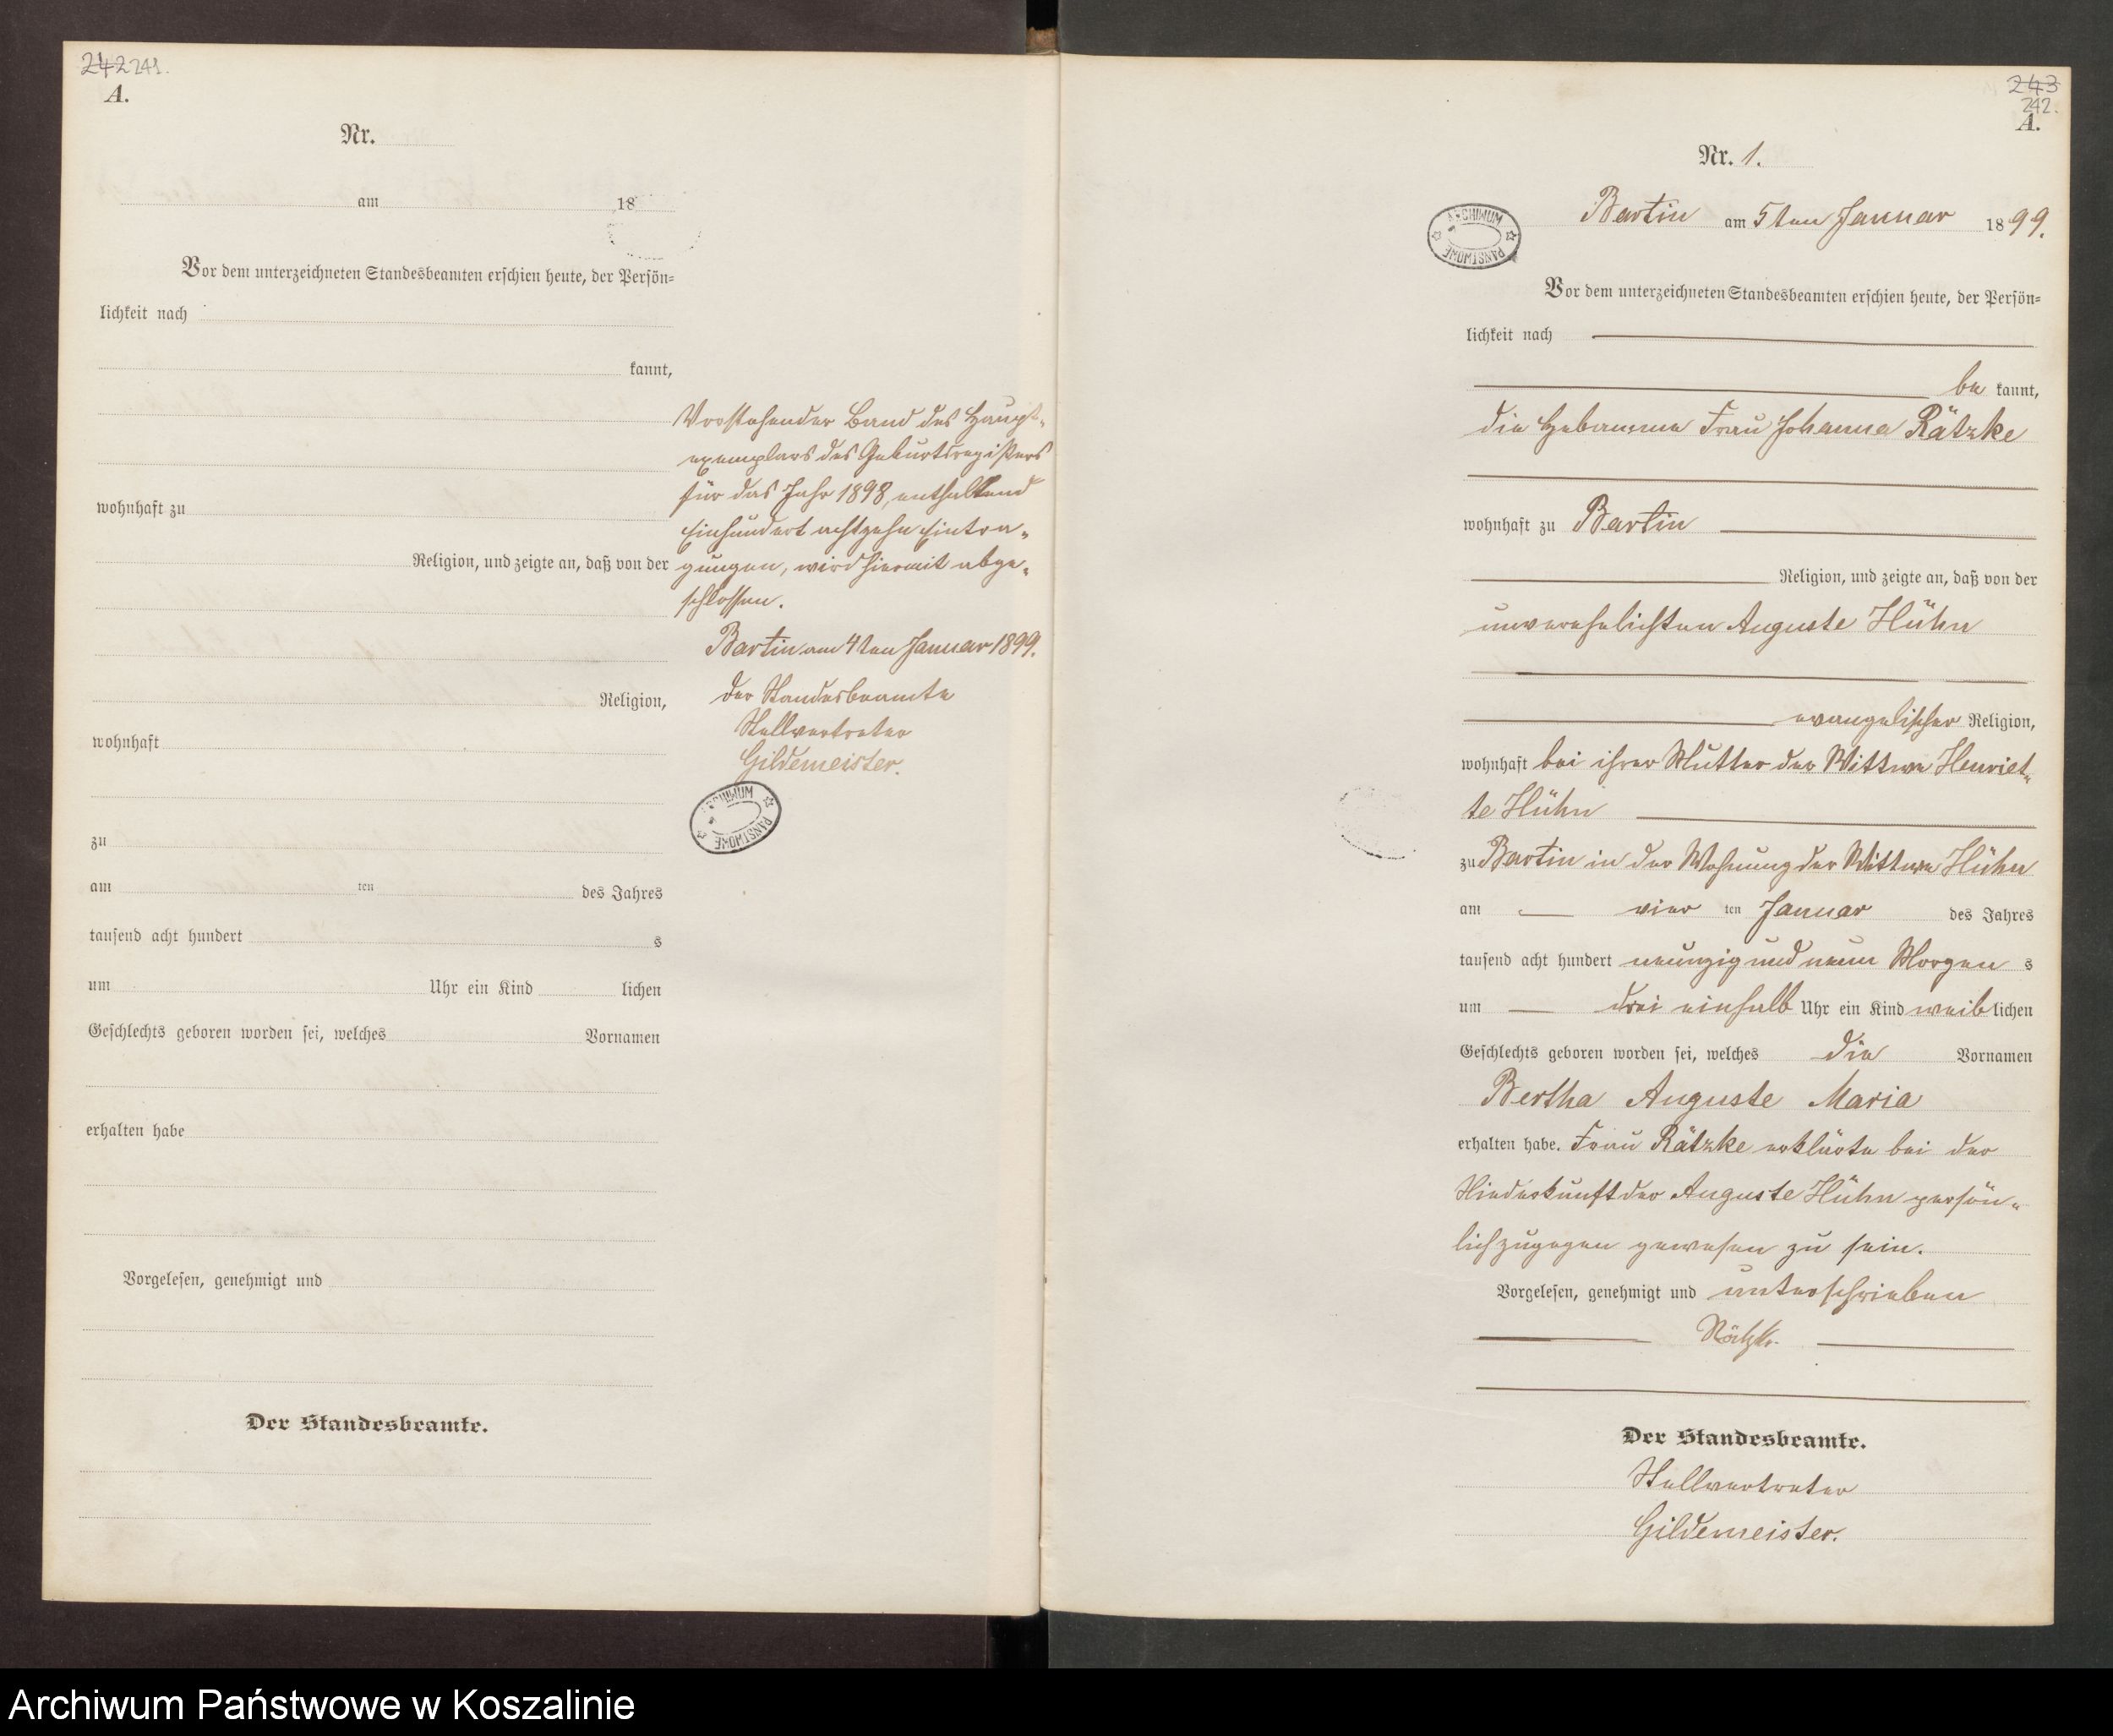 242 241.
A.
Nr.
am 18
Vor dem unterzeichneten Standesbeamten erschien heute, der Persön=
lichkeit nach
kannt,
wohnhaft zu
Religion, und zeigte an, daß von der
Religion,
wohnhaft
zu
am ten des Jahres
tausend acht hundert s
um Uhr ein Kind lichen
Geschlechts geboren worden sei, welches Vornamen
erhalten habe
Vorgelesen, genehmigt und
Der Standesbeamte.
Vorstehender Band des Haupt-
exemplars des Geburtsregisters
für das Jahr 1898, enthaltend
Einhundert achtzehn Eintra-
gungen, wird hiermit abge-
schlossen.
Bartin am 4ten Januar 1899.
Der Standesbeamte
Stellvertreter
Gildemeister.
ARCHIWUM
PANSTWOWE
243
242.
A.
Nr. 1.
ARCHIWUM
PANSTWOWE
Bartin am 5ten Januar 1899.
Vor dem unterzeichneten Standesbeamten erschien heute, der Persön=
lichkeit nach
be kannt,
die Hebamme Frau Johanna Rätzke
wohnhaft zu Bartin
Religion, und zeigte an, daß von der
unverehelichten Auguste Hühn
evangelischer Religion,
wohnhaft bei ihrer Mutter der Wittwe Henriet-
te Hühn
zu Bartin in der Wohnung der Wittwe Hühn
am vier ten Januar des Jahres
tausend acht hundert neunzig und neun Morgen s
um drei einhalb Uhr ein Kind weib lichen
Geschlechts geboren worden sei, welches die Vornamen
Bertha Auguste Maria
erhalten habe. Frau Rätzke erklärte bei der
Niederkunft der Auguste Hühn persön-
lich zugegen gewesen zu sein.
Vorgelesen, genehmigt und unterschrieben
Rätzke
Der Standesbeamte.
Stellvertreter
Gildemeister.
Archiwum Państwowe w Koszalinie